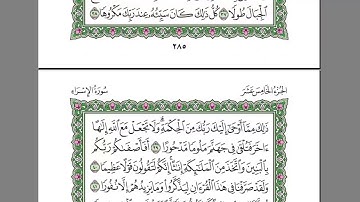 ٱلْجِبَالَ طُولًا ٣٧ كُلُّ ذَٰلِكَ كَانَ سَيِّئُهُۥ عِندَ رَبِّكَ مَكْرُوهًا ٣٨
٢٨٥
الجزء الخامس عشر سورة الإسراء
ذَٰلِكَ مِمَّآ أَوْحَىٰٓ إِلَيْكَ رَبُّكَ مِنَ ٱلْحِكْمَةِ ۗ وَلَا تَجْعَلْ مَعَ ٱللَّهِ إِلَٰهًا
ءَاخَرَ فَتُلْقَىٰ فِى جَهَنَّمَ مَلُومًا مَّدْحُورًا ٣٩ أَفَأَصْفَىٰكُمْ رَبُّكُم
بِٱلْبَنِينَ وَٱتَّخَذَ مِنَ ٱلْمَلَٰٓئِكَةِ إِنَٰثًا ۚ إِنَّكُمْ لَتَقُولُونَ قَوْلًا عَظِيمًا ٤٠
وَلَقَدْ صَرَّفْنَا فِى هَٰذَا ٱلْقُرْءَانِ لِيَذَّكَّرُوا۟ وَمَا يَزِيدُهُمْ إِلَّا نُفُورًا ٤١